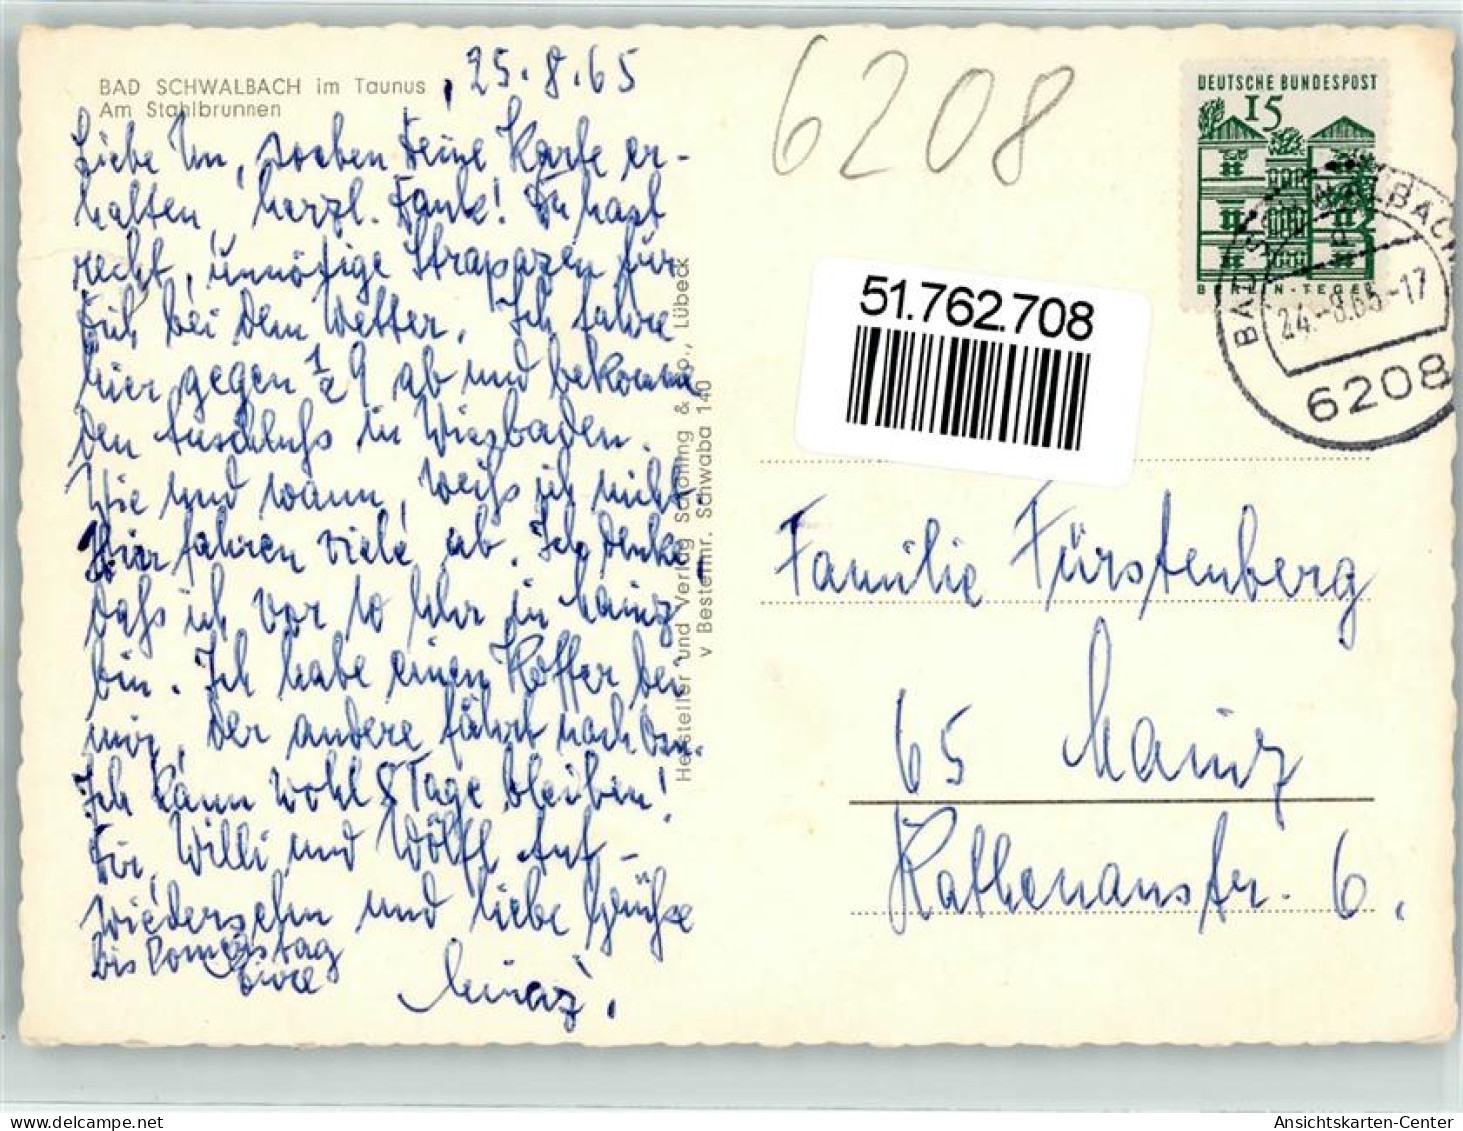 BAD SCHWALBACH im Taunus
Am Stahlbrunnen
, 25.8.65
Liebe Un, soeben Deine Karte er-
halten, herzl. Dank! Du hast
recht, unnötige Strapazen für
Dich bei dem Wetter. Ich fahre
hier gegen 1/2 9 ab und bekomme
den Anschluß in Wiesbaden.
Wie und wann, weiß ich nicht.
Hier fahren viele ab. Ich denke,
daß ich vor 10 Uhr in Mainz
bin. Ich habe einen Koffer bei
mir, der andere fährt nach
Ich kann wohl 8 Tage bleiben!
Dir, Willi und Wölfi Auf-
wiedersehn und liebe Grüße
bis Donnerstag
Eure
Hersteller und Verlag Schöning & Co., Lübeck
v Bestellnr. Schwaba 140
6208
DEUTSCHE BUNDESPOST
15
BERLIN-TEGEL
BAD SCHWALBACH
24.-8.65-17
6208
51.762.708
Familie Fürstenberg
65 Mainz
Rathenaustr. 6.
Ansichtskarten-Center